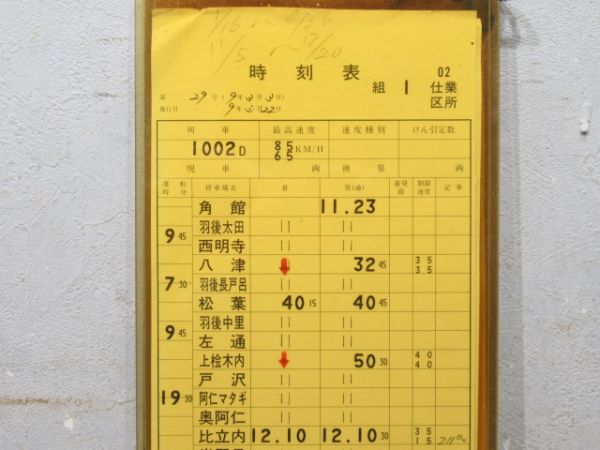 1/16 ~
11/5 ~ 12/20
時刻表 02
組 1 仕業
区所
29年(9年3月3日)
施行日 9年3月22日
列車 最高速度 速度種別 けん引定数
1002D 85 KM/H
65
現車 両 換算 両
運転時分 停車場名 着 発(通) 着発線 制限速度 記事
角館 11.23
羽後太田 || ||
9 45
西明寺 || ||
八津 ↓ 32 45 35
35
7 30 羽後長戸呂 || ||
松葉 40 15 40 45
羽後中里 || ||
9 45
左通 || ||
上桧木内 ↓ 50 30 40
40
戸沢 || ||
19 30 阿仁マタギ || ||
奥阿仁 || ||
比立内 12.10 12.10 30 35
15